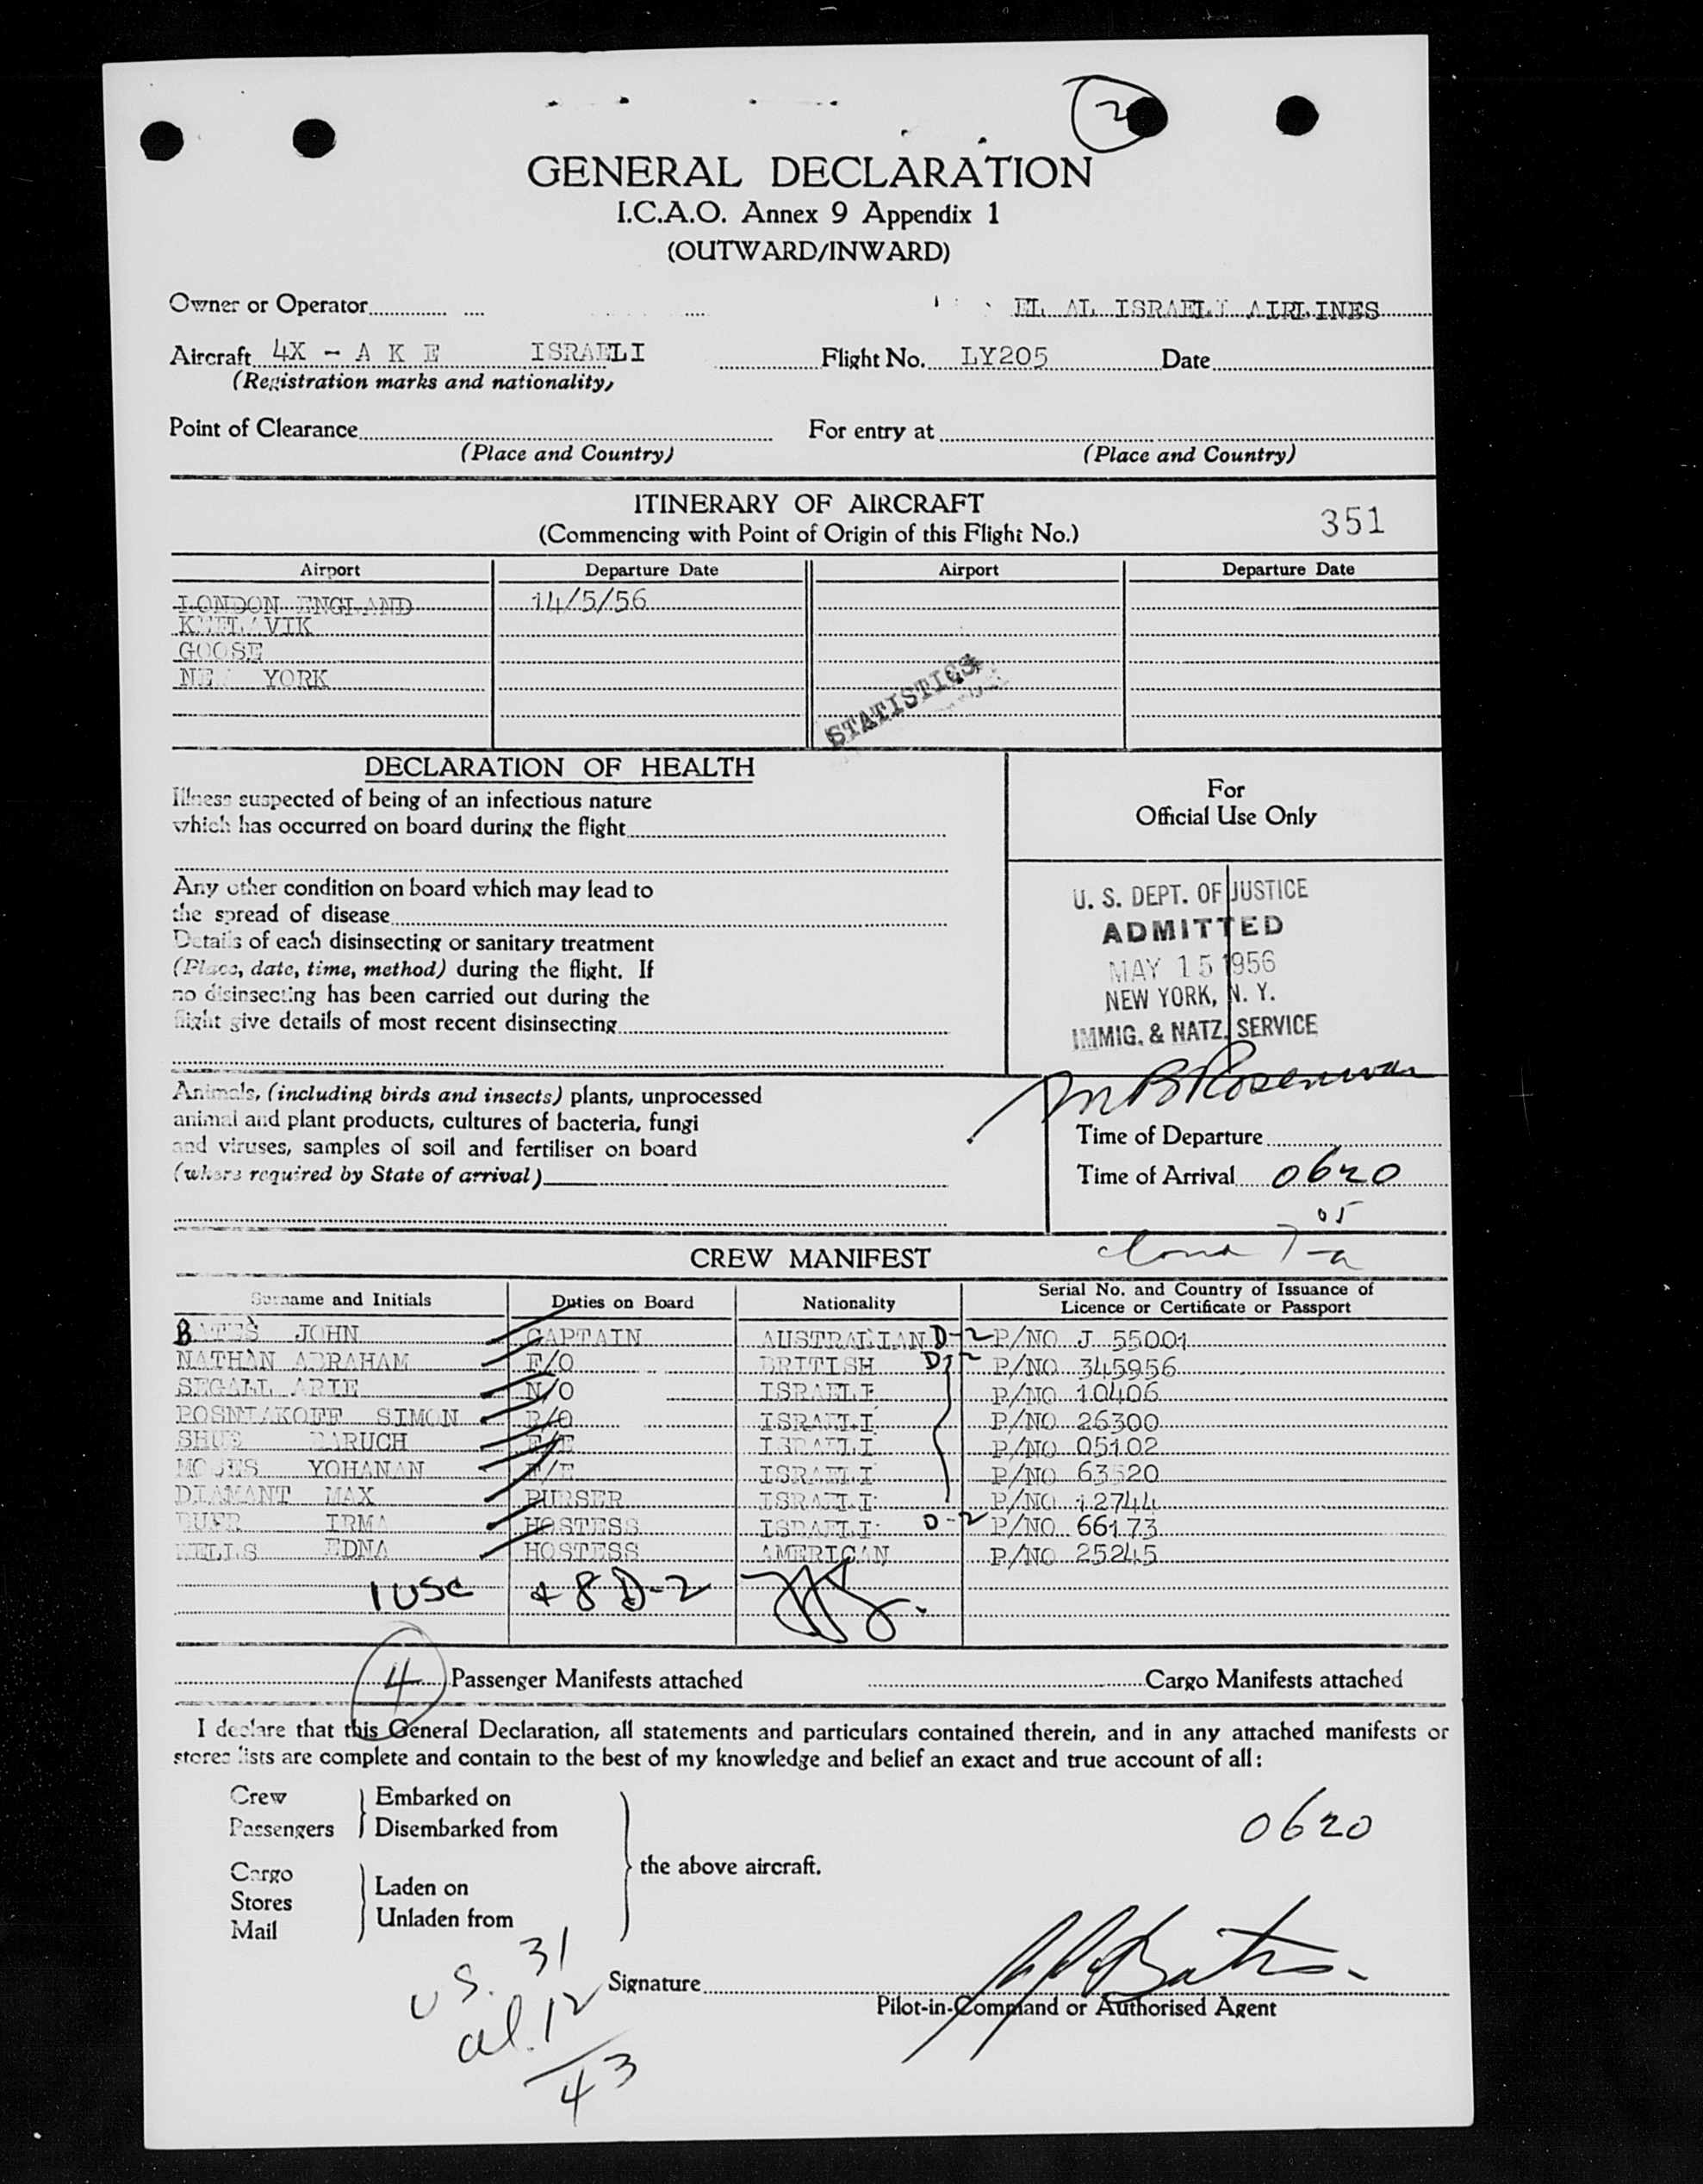 2
GENERAL DECLARATION
I.C.A.O. Annex 9 Appendix 1
(OUTWARD/INWARD)
Owner or Operator EL AL ISRAELI AIRLINES
Aircraft 4X - A K E ISRAELI Flight No. LY205 Date
(Registration marks and nationality)
Point of Clearance For entry at
(Place and Country) (Place and Country)
ITINERARY OF AIRCRAFT
(Commencing with Point of Origin of this Flight No.) 351
Airport Departure Date Airport Departure Date
LONDON ENGLAND 14/5/56
KEFLAVIK
GOOSE
NEW YORK
STATISTICS
DECLARATION OF HEALTH
Illness suspected of being of an infectious nature
which has occurred on board during the flight
Any other condition on board which may lead to
the spread of disease
Details of each disinsecting or sanitary treatment
(Place, date, time, method) during the flight. If
no disinsecting has been carried out during the
flight give details of most recent disinsecting
For
Official Use Only
U. S. DEPT. OF JUSTICE
ADMITTED
MAY 15 1956
NEW YORK, N. Y.
IMMIG. & NATZ. SERVICE
Animals, (including birds and insects) plants, unprocessed
animal and plant products, cultures of bacteria, fungi
and viruses, samples of soil and fertiliser on board
(where required by State of arrival)
Time of Departure
Time of Arrival 0620
05
CREW MANIFEST
Surname and Initials Duties on Board Nationality Serial No. and Country of Issuance of
Licence or Certificate or Passport
BATES JOHN CAPTAIN AUSTRALIAN D-2 P/NO J 55001
NATHAN ABRAHAM F/O BRITISH D-2 P/NO 345956
SEGALL ARIE N/O ISRAELI P/NO 10406
POSNIAKOFF SIMON R/O ISRAELI P/NO 26300
BARUCH F/E ISRAELI P/NO 05102
MOSES YOHANAN F/E ISRAELI P/NO 63520
DIAMANT MAX PURSER ISRAELI P/NO 12744
IRMA HOSTESS ISRAELI D-2 P/NO 66173
WELLS EDNA HOSTESS AMERICAN P/NO 25245
1 USC + 8 D-2
4 Passenger Manifests attached Cargo Manifests attached
I declare that this General Declaration, all statements and particulars contained therein, and in any attached manifests or
stores lists are complete and contain to the best of my knowledge and belief an exact and true account of all:
Crew Embarked on
Passengers Disembarked from
0620
the above aircraft.
Cargo
Stores Laden on
Mail Unladen from
U S. 31
al. 12
43
Signature
Pilot-in-Command or Authorised Agent